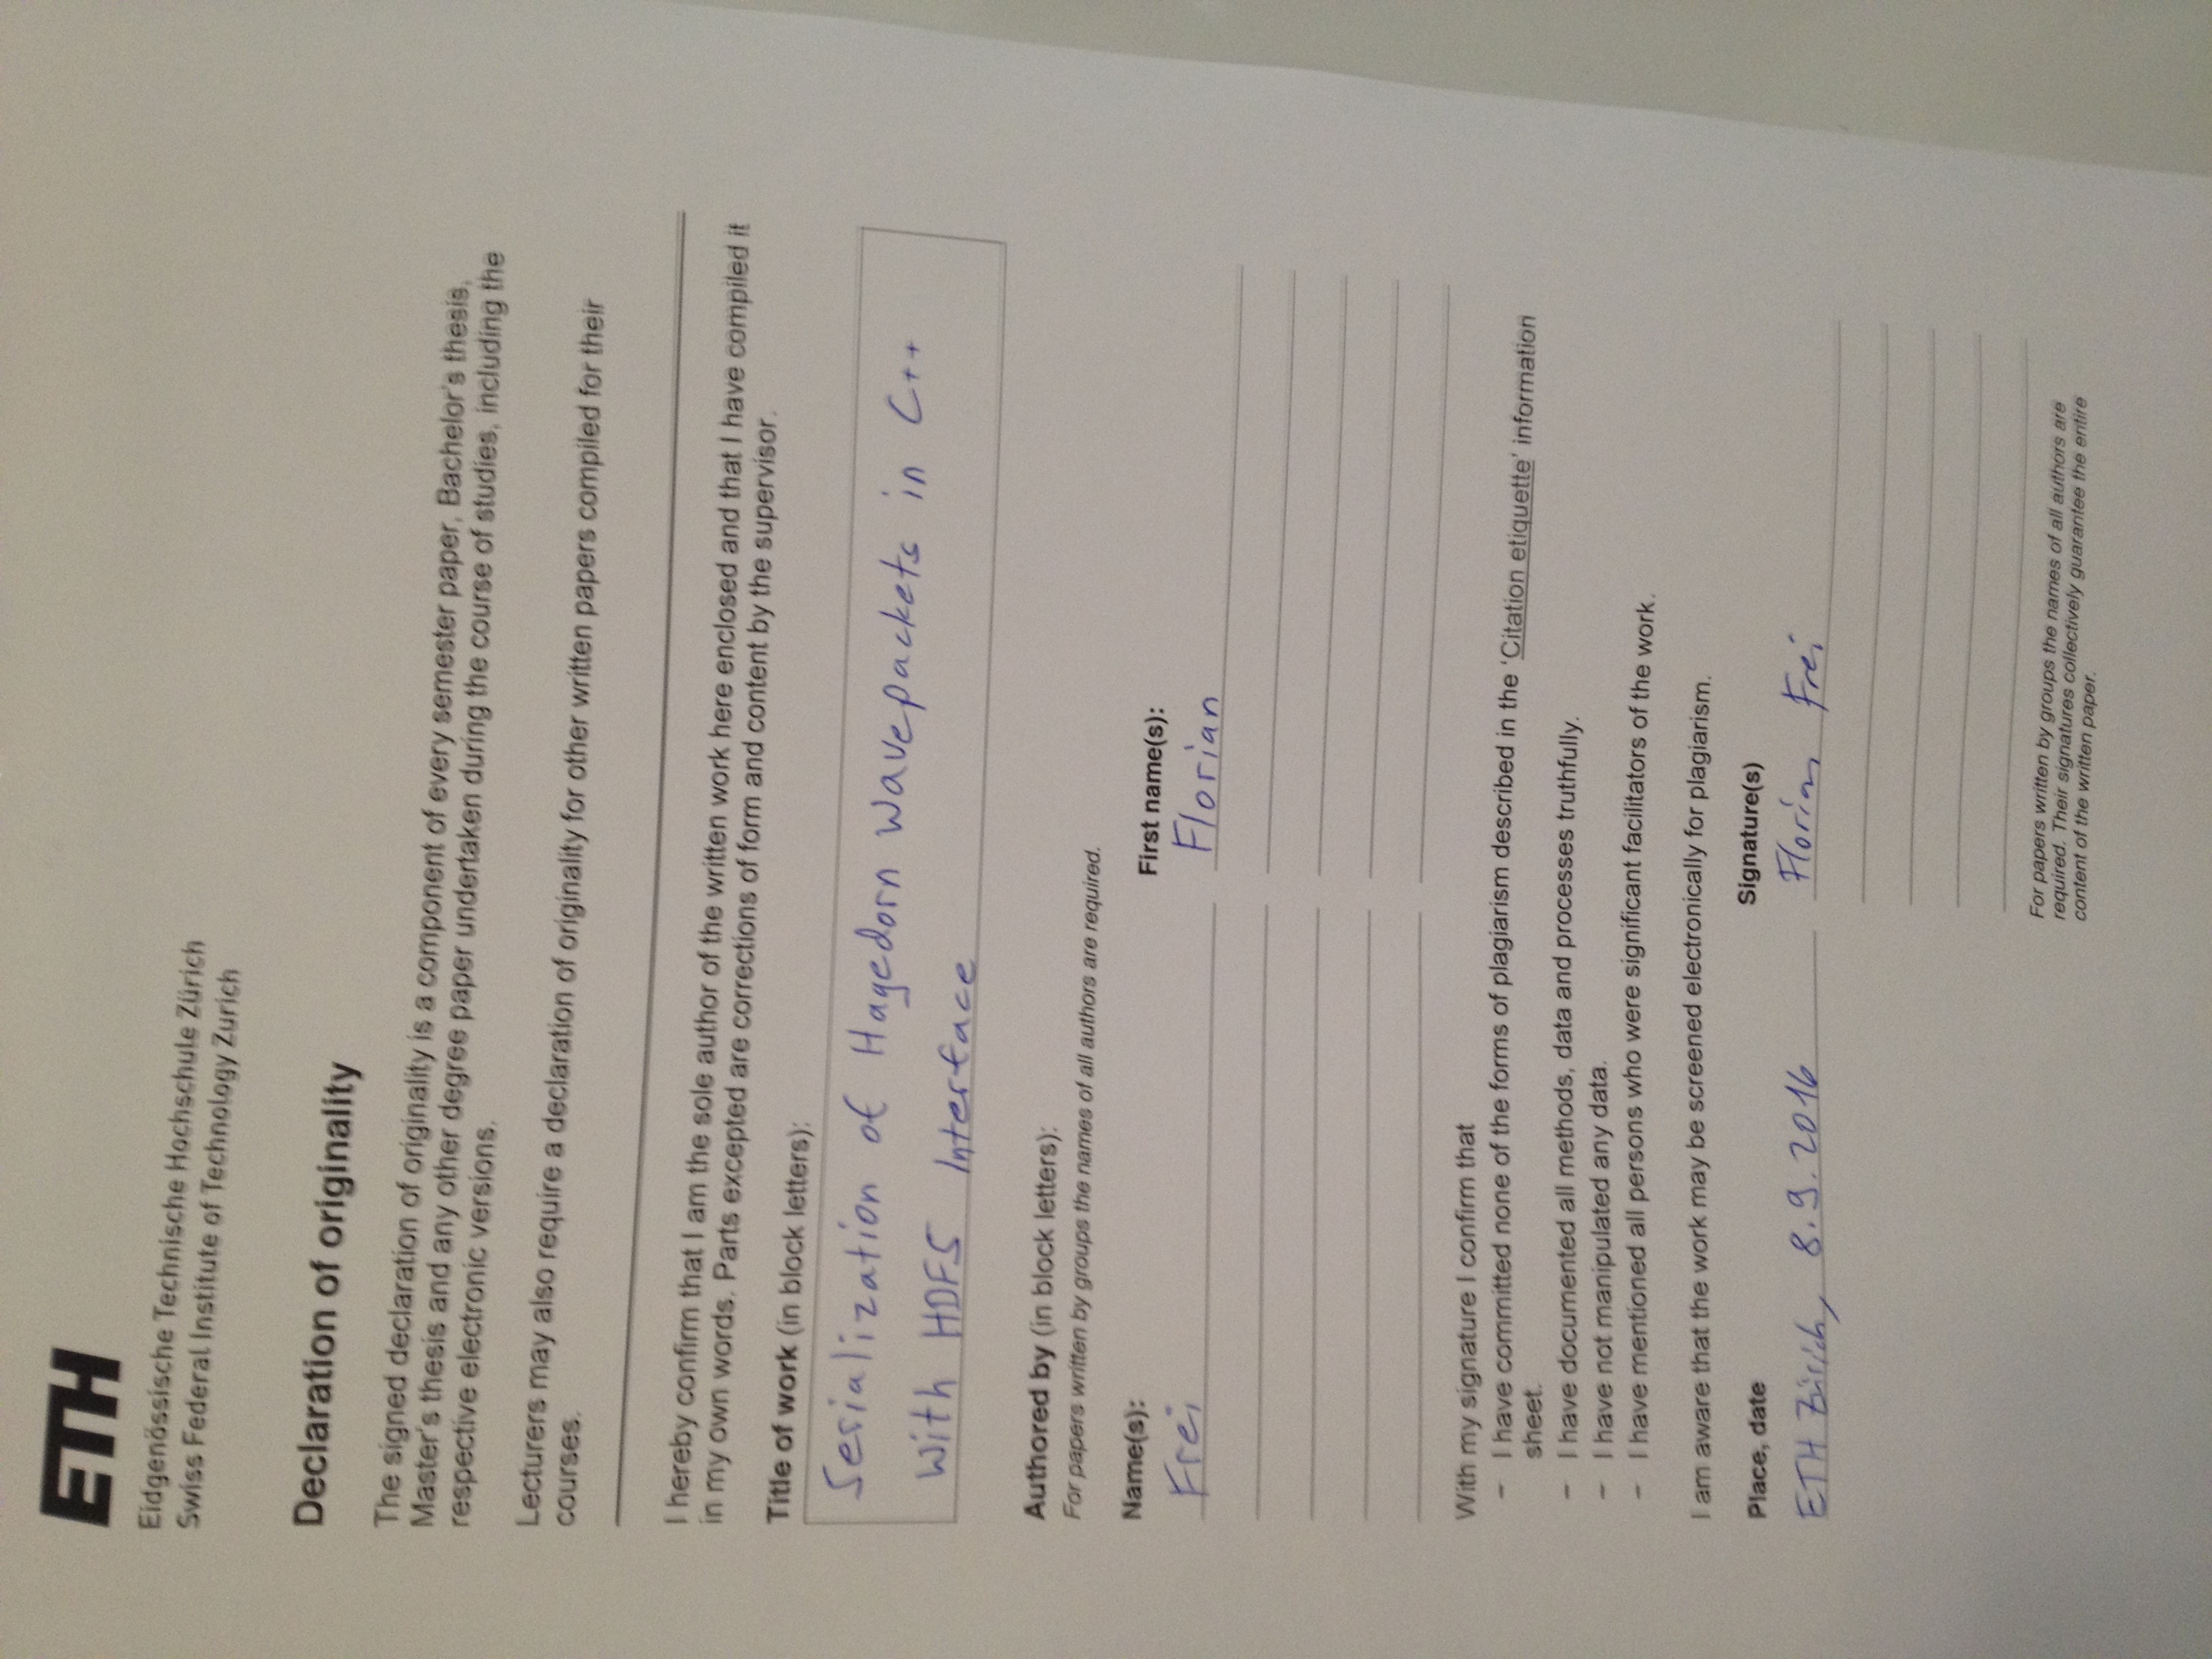 ETH
Eidgenössische Technische Hochschule Zürich
Swiss Federal Institute of Technology Zurich
Declaration of originality
The signed declaration of originality is a component of every semester paper, Bachelor's thesis,
Master's thesis and any other degree paper undertaken during the course of studies, including the
respective electronic versions.
Lecturers may also require a declaration of originality for other written papers compiled for their
courses.
I hereby confirm that I am the sole author of the written work here enclosed and that I have compiled it
in my own words. Parts excepted are corrections of form and content by the supervisor.
Title of work (in block letters):
Serialization of Hagedorn Wavepackets in C++
With HDF5 Interface
Authored by (in block letters):
For papers written by groups the names of all authors are required.
Name(s): First name(s):
Frei Florian
With my signature I confirm that
– I have committed none of the forms of plagiarism described in the 'Citation etiquette' information
sheet.
– I have documented all methods, data and processes truthfully.
– I have not manipulated any data.
– I have mentioned all persons who were significant facilitators of the work.
I am aware that the work may be screened electronically for plagiarism.
Place, date Signature(s)
ETH Zürich, 8.9.2016 Florian Frei
For papers written by groups the names of all authors are
required. Their signatures collectively guarantee the entire
content of the written paper.